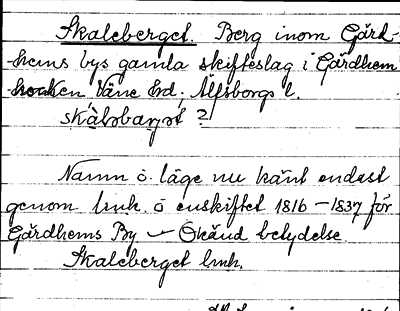 Skaleberget. Berg inom Gärd-
hems bys gamla skifteslag i Gärdhem
socken Väne hd. Älfsborgs l.
skàlsbarjət ?
Namn o. läge nu känt endast
genom lmh. o enskiftet 1816-1837 för
Gärdhems By - Okänd betydelse.
Skaleberget lmh.